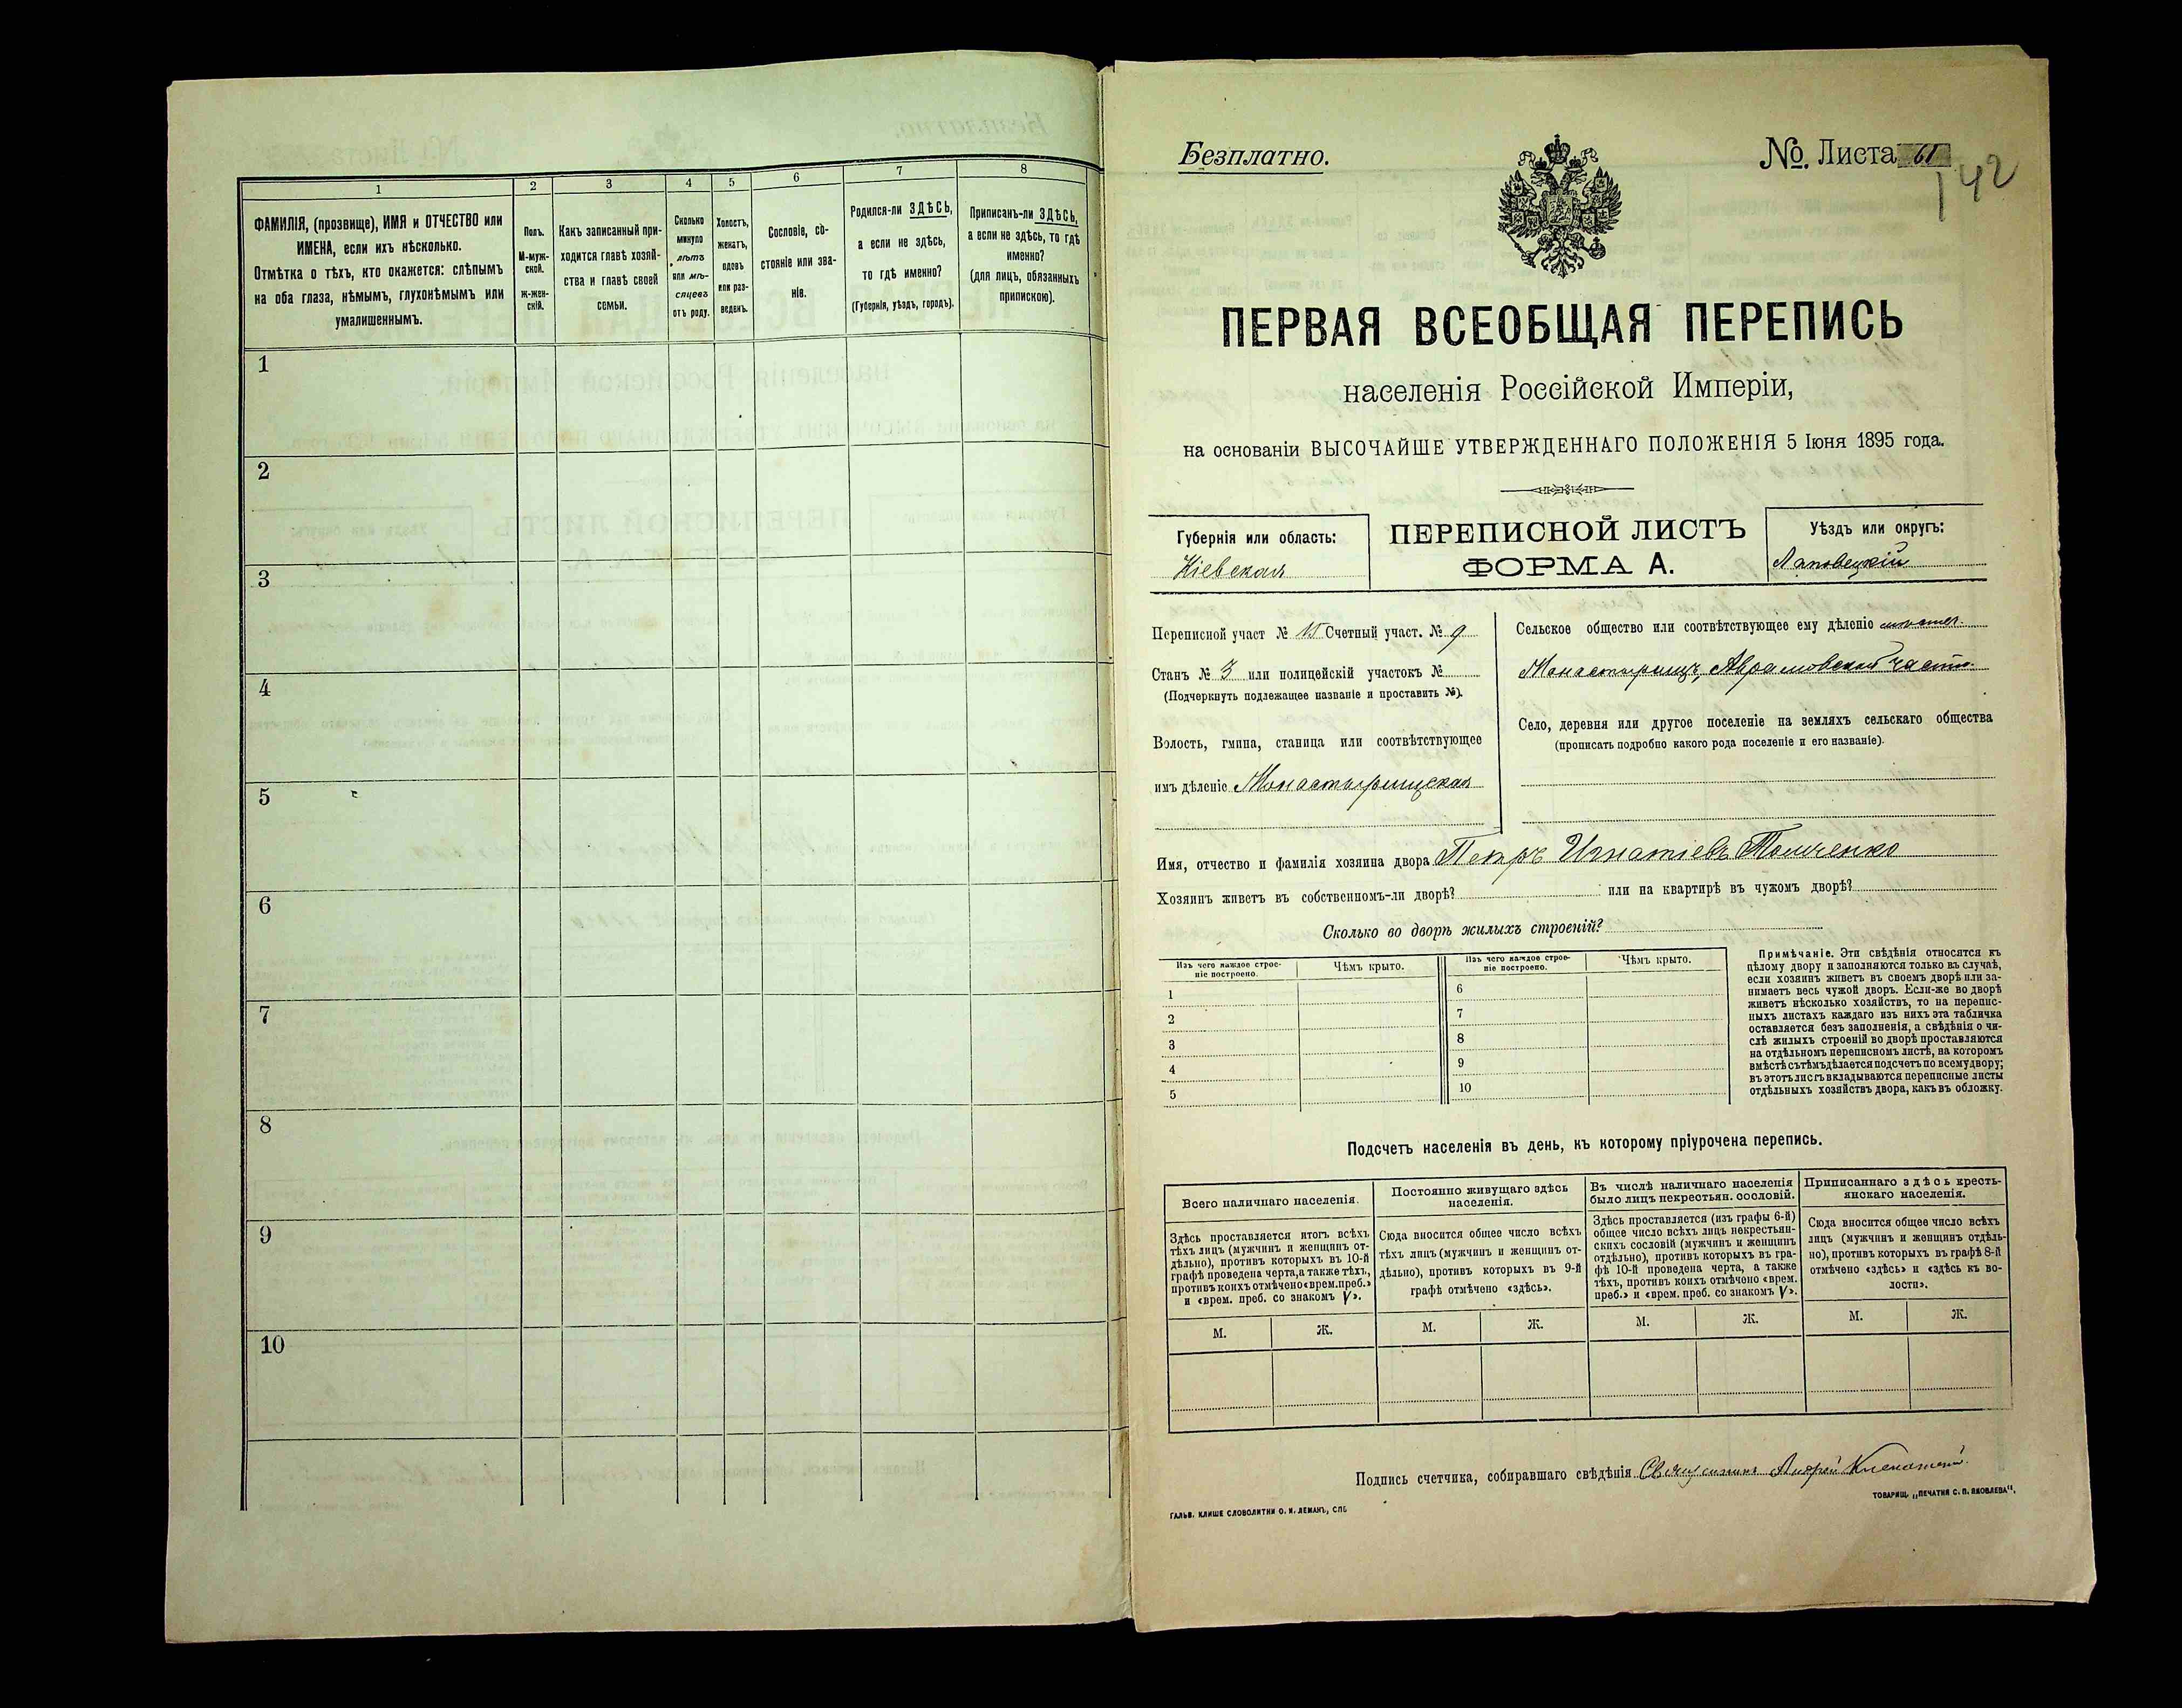 1
2
3
4
5
6
7
8
ФАМИЛІЯ, (прозвище), ИМЯ и ОТЧЕСТВО или
ИМЕНА, если ихъ нѣсколько.
Отмѣтка о тѣхъ, кто окажется: слѣпымъ
на оба глаза, нѣмымъ, глухонѣмымъ или
умалишеннымъ.
Полъ.
М-муж-
ской.
ж-жен-
скій.
Какъ записанный при-
ходится главѣ хозяй-
ства и главѣ своей
семьи.
Сколько
минуло
лѣтъ
или мѣ-
сяцевъ
отъ роду.
Холостъ,
женатъ,
вдовъ
или раз-
веденъ.
Сословіе, со-
стояніе или зва-
ніе.
Родился-ли ЗДѢСЬ,
а если не здѣсь,
то гдѣ именно?
(Губернія, уѣздъ, городъ).
Приписанъ-ли ЗДѢСЬ,
а если не здѣсь, то гдѣ
именно?
(для лицъ, обязанныхъ
припискою).
1
2
3
4
5
6
7
8
9
10
Безплатно.
№. Листа 61
142
ПЕРВАЯ ВСЕОБЩАЯ ПЕРЕПИСЬ
населенія Россійской Имперіи,
на основаніи ВЫСОЧАЙШЕ УТВЕРЖДЕННАГО ПОЛОЖЕНІЯ 5 Іюня 1895 года.
Губернія или область:
Кіевская
ПЕРЕПИСНОЙ ЛИСТЪ
ФОРМА А.
Уѣздъ или округъ:
Липовецкій
Переписной участ № Счетный участ. № 9
Станъ № 3 или полицейскій участокъ №
(Подчеркнуть подлежащее названіе и проставить №).
Волость, гмина, станица или соотвѣтствующее
имъ дѣленіе Монастырищская
Сельское общество или соотвѣтствующее ему дѣленіе
Монастырищъ, Аврамовской части
Село, деревня или другое поселеніе на земляхъ сельскаго общества
(прописать подробно какого рода поселеніе и его названіе).
Имя, отчество и фамилія хозяина двора Петръ Игнатіевъ Томченко
Хозяинъ живетъ въ собственномъ-ли дворѣ? или на квартирѣ въ чужомъ дворѣ?
Сколько во дворѣ жилыхъ строеній?
Изъ чего каждое строе-
ніе построено.
Чѣмъ крыто.
Изъ чего каждое строе-
ніе построено.
Чѣмъ крыто.
1
2
3
4
5
6
7
8
9
10
Примѣчаніе. Эти свѣдѣнія относятся къ
цѣлому двору и заполняются только въ случаѣ,
если хозяинъ живетъ въ своемъ дворѣ или за-
нимаетъ весь чужой дворъ. Если-же во дворѣ
живетъ нѣсколько хозяйствъ, то на перепис-
ныхъ листахъ каждаго изъ нихъ эта табличка
оставляется безъ заполненія, а свѣдѣнія о чи-
слѣ жилыхъ строеній во дворѣ проставляются
на отдѣльномъ переписномъ листѣ, на которомъ
вмѣстѣ съ тѣмъ дѣлается подсчетъ по всему двору;
въ этотъ листъ вкладываются переписные листы
отдѣльныхъ хозяйствъ двора, какъ въ обложку.
Подсчетъ населенія въ день, къ которому пріурочена перепись.
Всего наличнаго населенія.
Здѣсь проставляется итогъ всѣхъ
тѣхъ лицъ (мужчинъ и женщинъ от-
дѣльно), противъ которыхъ въ 10-й
графѣ проведена черта, а также тѣхъ,
противъ коихъ отмѣчено «врем. преб.»
и «врем. преб. со знакомъ V».
Постоянно живущаго здѣсь
населенія.
Сюда вносится общее число всѣхъ
тѣхъ лицъ (мужчинъ и женщинъ от-
дѣльно), противъ которыхъ въ 9-й
графѣ отмѣчено «здѣсь».
Въ числѣ наличнаго населенія
было лицъ некрестьян. сословій.
Здѣсь проставляется (изъ графы 6-й)
общее число всѣхъ лицъ некрестьян-
скихъ сословій (мужчинъ и женщинъ
отдѣльно), противъ которыхъ въ гра-
фѣ 10-й проведена черта, а также
тѣхъ, противъ коихъ отмѣчено «врем.
преб.» и «врем. преб. со знакомъ V».
Приписаннаго здѣсь кресть-
янскаго населенія.
Сюда вносится общее число всѣхъ
лицъ (мужчинъ и женщинъ отдѣль-
но), противъ которыхъ въ графѣ 8-й
отмѣчено «здѣсь» и «здѣсь къ во-
лости».
М. Ж. М. Ж. М. Ж. М. Ж.
Подпись счетчика, собиравшаго свѣдѣнія Андрей
ГАЛЬВ. КЛИШЕ СЛОВОЛИТНИ О. И. ЛЕМАНЪ, СПБ
ТОВАРИЩ. „ПЕЧАТНЯ С. П. ЯКОВЛЕВА".